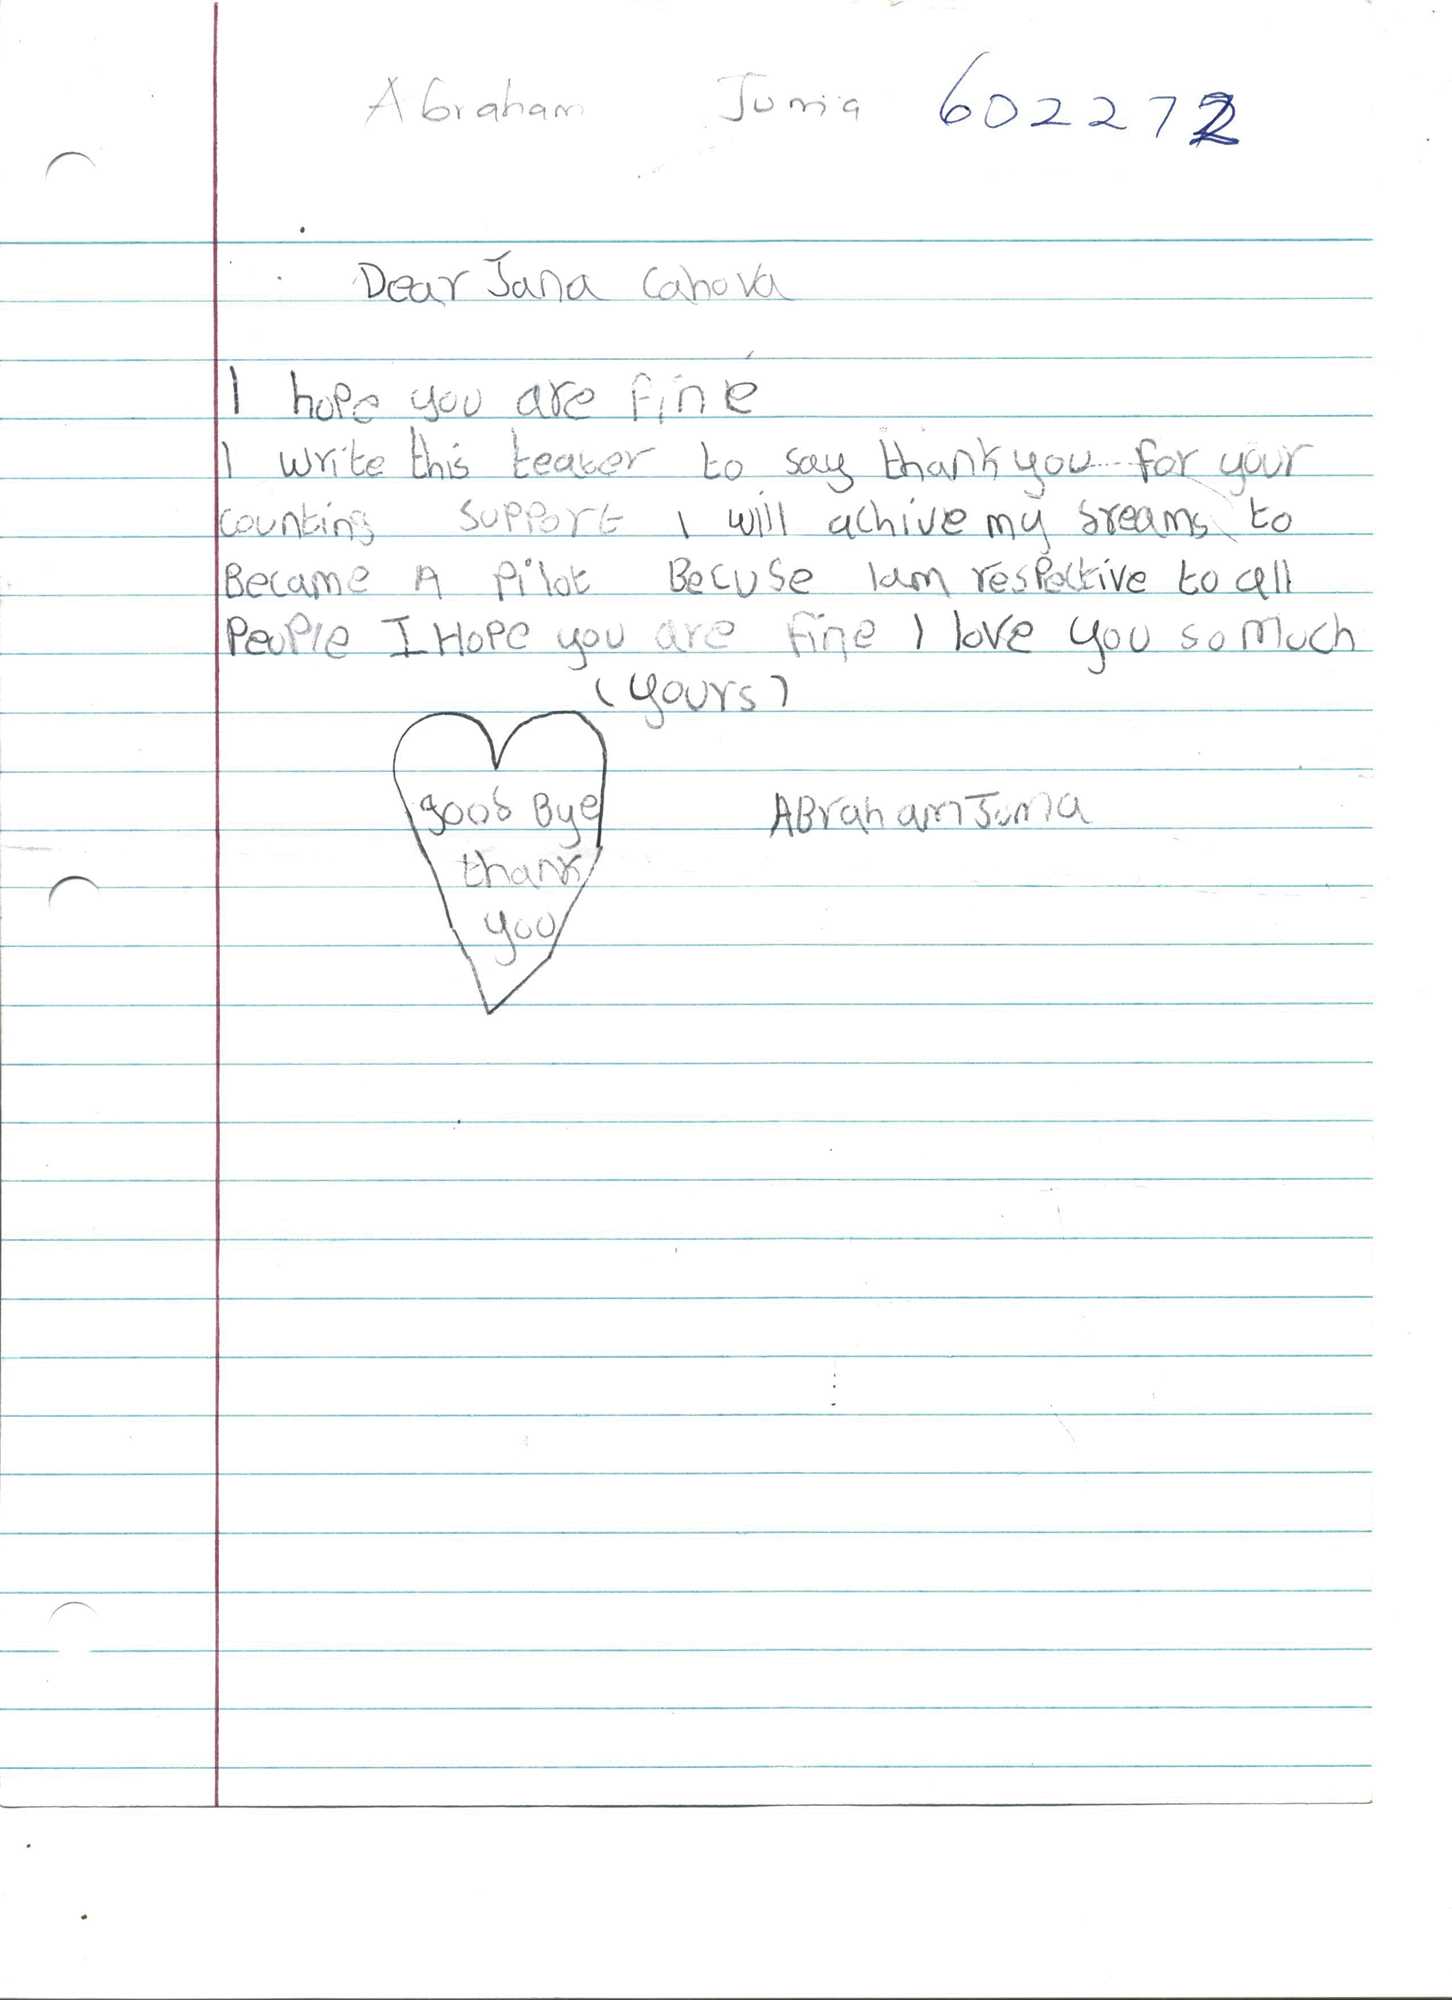 Abraham Juma 602272
Dear Jana Cahova
I hope you are fine
I write this teater to say thank you for your
counting support I will achive my sreams to
Became A pilot Becuse Iam respective to all
People I Hope you are fine I love you so much
(yours)
good Bye
thank
you
ABraham Juma